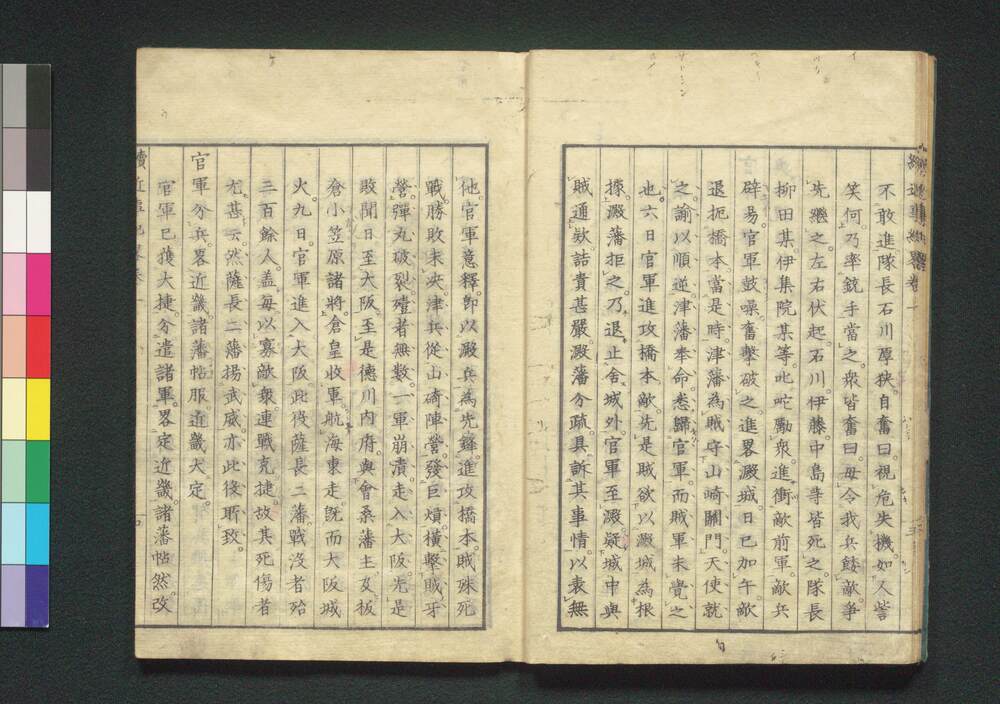 不敢進隊長石川厚狹自奮曰視危失機如人訾
笑何乃率銃手當之衆皆奮曰毋令我兵餧敵爭
先繼之左右伏起石川伊藤中島等皆死之隊長
柳田某伊集院某等叱咤勵衆進衝敵前軍敵兵
辟易官軍鼓噪奮擊破之進畧澱城日已加午敵
退扼橋本當是時津藩為賊守山崎關門天使就
之諭以順逆津藩奉命悉歸官軍而賊軍未覺之
也六日官軍進攻橋本敵先是賊欲以澱城為根
據澱藩拒之乃退止舍城外官軍至澱疑城中與
賊通欵詰責甚嚴澱藩分疏具訴其事情以表無
他官軍意釋卽以澱兵為先鋒進攻橋本賊殊死
戰勝敗未決津兵從山碕陣營發巨熕橫擊賊牙
營彈丸破裂殪者無數一軍崩潰走入大阪先是
敗聞日至大阪至是德川内府與會桑藩主及板
倉小笠原諸將倉皇收軍航海東走旣而大阪城
火九日官軍進入大阪此役薩長二藩戰沒者殆
三百餘人盖每以寡敵衆連戰克捷故其死傷者
尤甚云然薩長二藩揚武威亦此役所致
官軍分兵畧近畿諸藩帖服近畿大定
官軍已獲大捷分遣諸軍畧定近畿諸藩帖然改